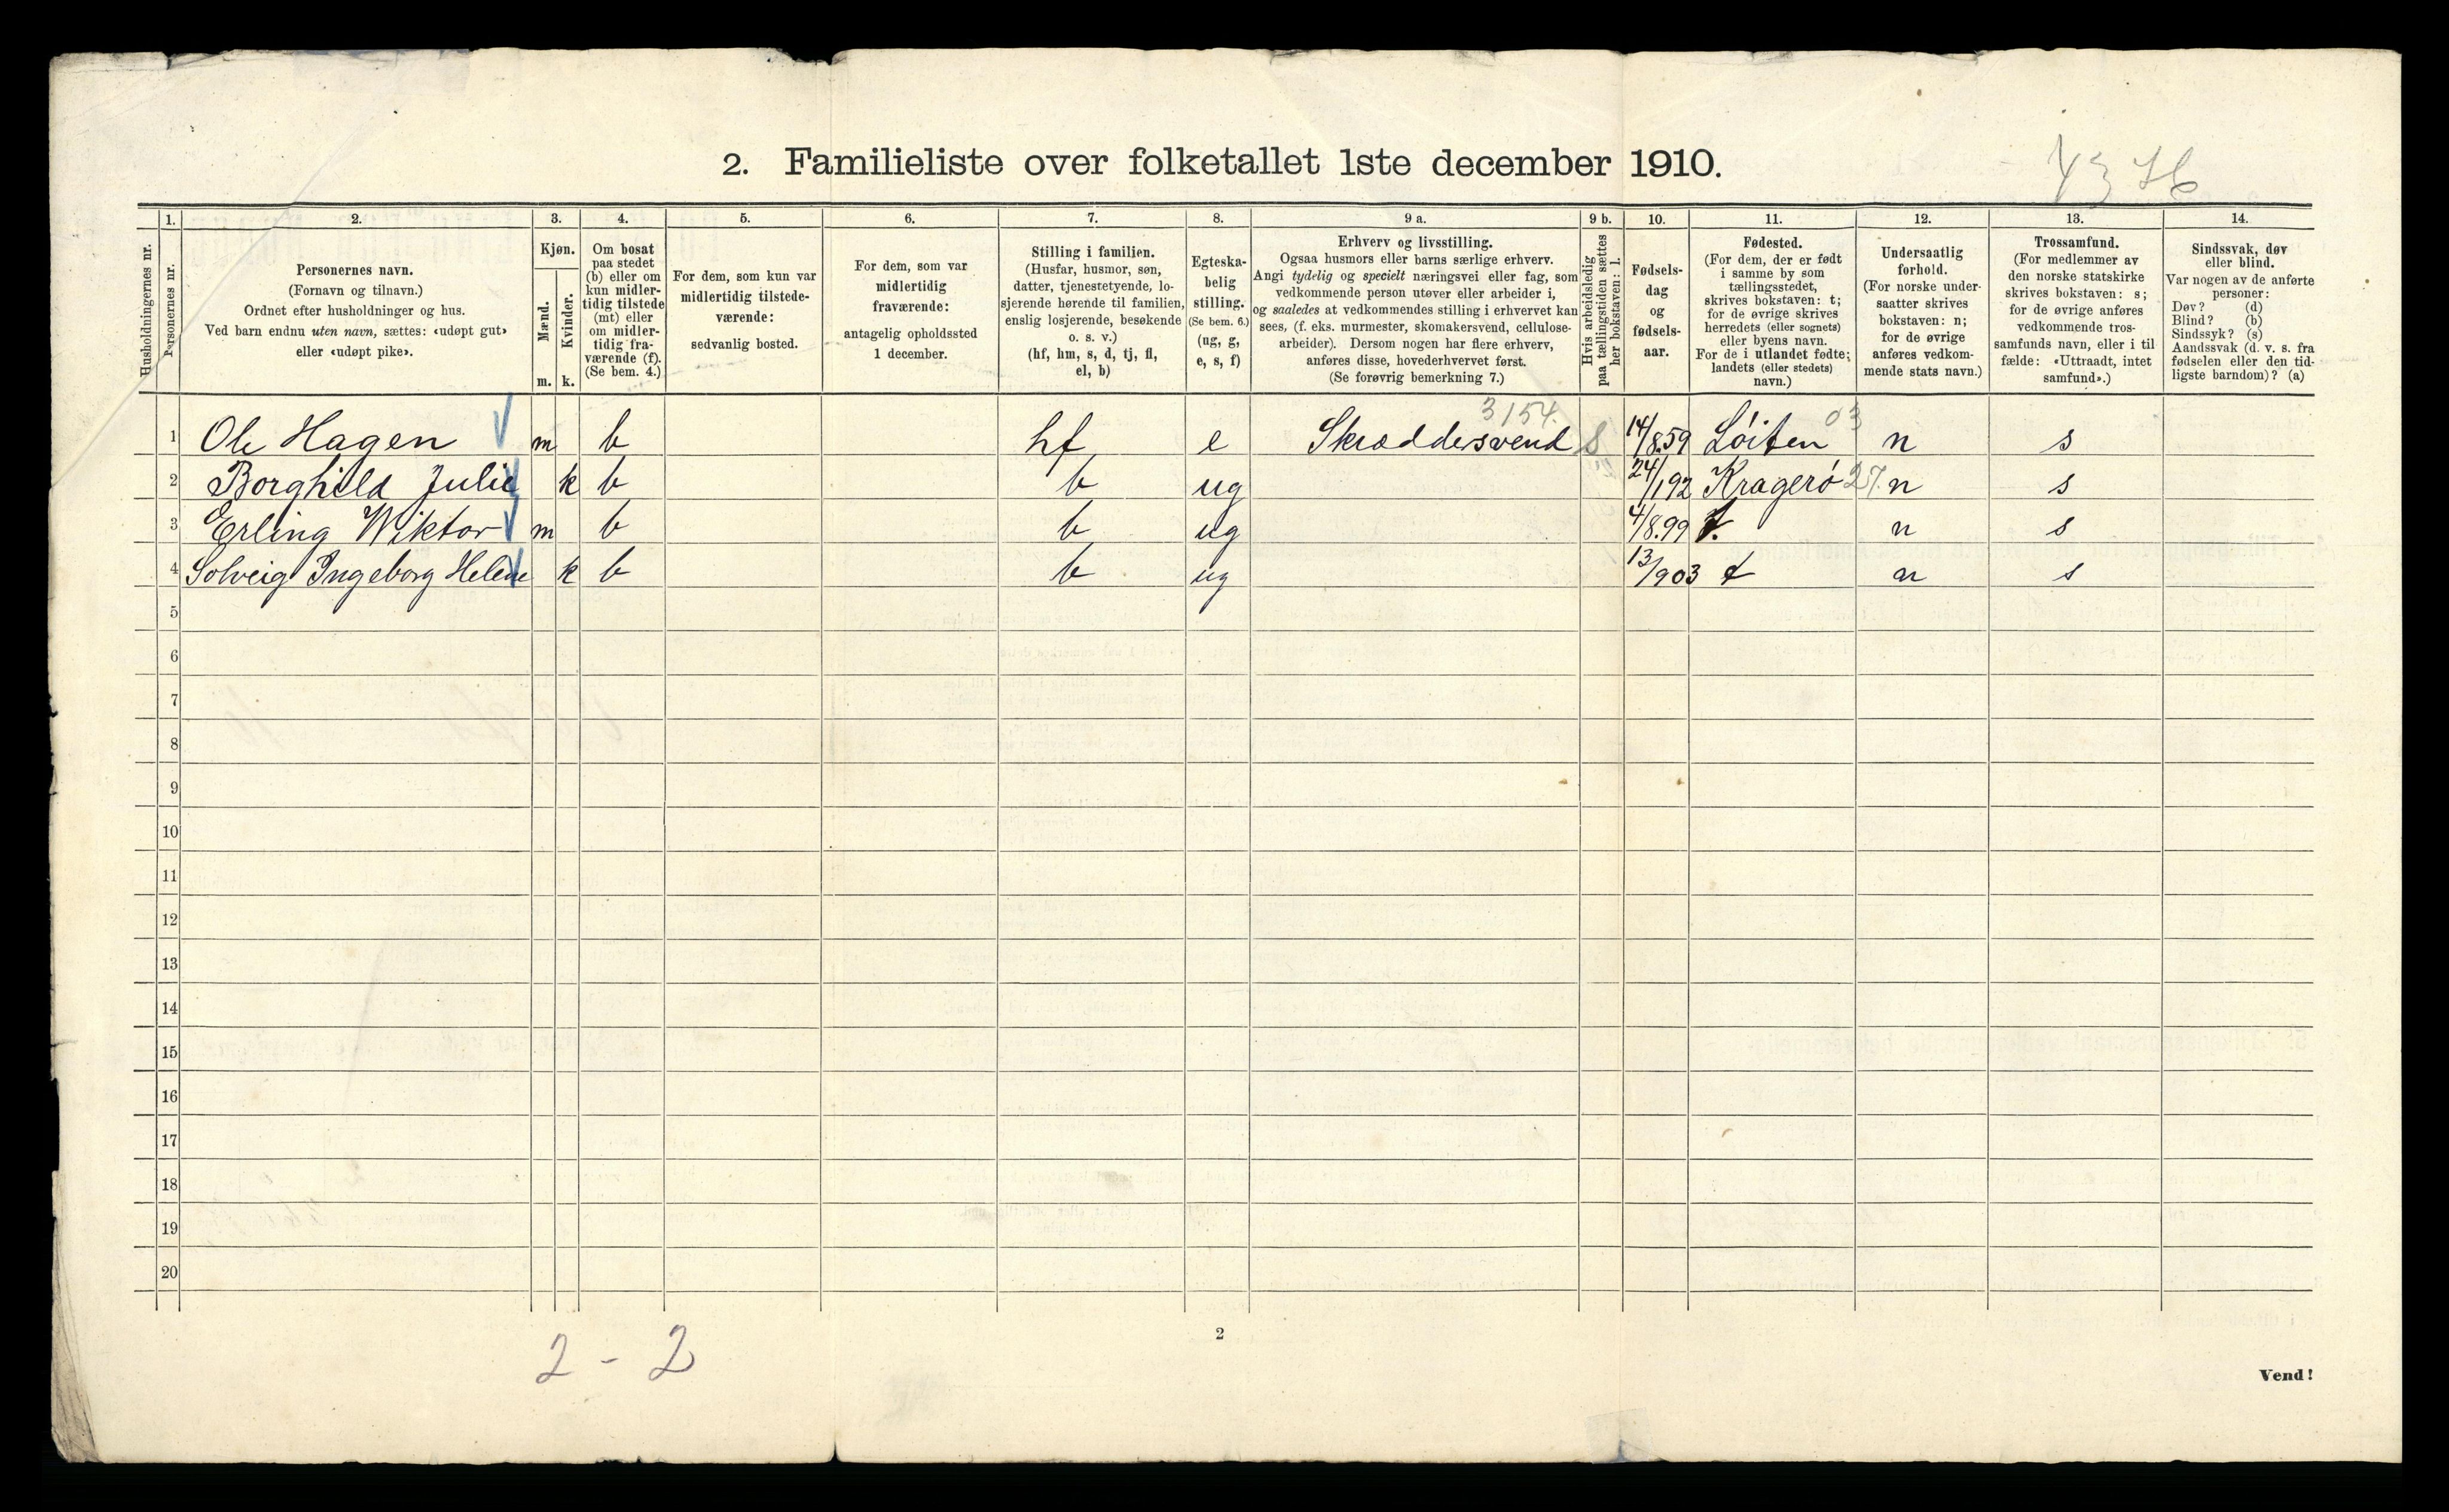 2. Familieliste over folketallet 1ste december 1910.
Husholdningernes nr.
1.
Personernes nr.
2.
Personernes navn.
(Fornavn og tilnavn.)
Ordnet efter husholdninger og hus.
Ved barn endnu uten navn, sættes: «udøpt gut»
eller «udøpt pike».
3.
Kjøn.
Mænd.
Kvinder.
m. k.
4.
Om bosat
paa stedet
(b) eller om
kun midler-
tidig tilstede
(mt) eller
om midler-
tidig fra-
værende (f).
(Se bem. 4.)
5.
For dem, som kun var
midlertidig tilstede-
værende:
sedvanlig bosted.
6.
For dem, som var
midlertidig
fraværende:
antagelig opholdssted
1 december.
7.
Stilling i familien.
(Husfar, husmor, søn,
datter, tjenestetyende, lo-
sjerende hørende til familien,
enslig losjerende, besøkende
o. s. v.)
(hf, hm, s, d, tj, fl,
el, b)
8.
Egteska-
belig
stilling.
(Se bem. 6.)
(ug, g,
e, s, f)
9 a.
Erhverv og livsstilling.
Ogsaa husmors eller barns særlige erhverv.
Angi tydelig og specielt næringsvei eller fag, som
vedkommende person utøver eller arbeider i,
og saaledes at vedkommendes stilling i erhvervet kan
sees, (f. eks. murmester, skomakersvend, cellulose-
arbeider). Dersom nogen har flere erhverv,
anføres disse, hovederhvervet først.
(Se forøvrig bemerkning 7.)
9 b.
Hvis arbeidsledig
paa tællingstiden sættes
her bokstaven: l.
10.
Fødsels-
dag
og
fødsels-
aar.
11.
Fødested.
(For dem, der er født
i samme by som
tællingsstedet,
skrives bokstaven: t;
for de øvrige skrives
herredets (eller sognets)
eller byens navn.
For de i utlandet fødte;
landets (eller stedets)
navn.)
12.
Undersaatlig
forhold.
(For norske under-
saatter skrives
bokstaven: n;
for de øvrige
anføres vedkom-
mende stats navn.)
13.
Trossamfund.
(For medlemmer av
den norske statskirke
skrives bokstaven: s;
for de øvrige anføres
vedkommende tros-
samfunds navn, eller i til
fælde: «Uttraadt, intet
samfund».)
14.
Sindssvak, døv
eller blind.
Var nogen av de anførte
personer:
Døv? (d)
Blind? (b)
Sindssyk? (s)
Aandssvak (d. v. s. fra
fødselen eller den tid-
ligste barndom)? (a)
3154. 03
1 Ole Hagen m b hf e Skræddersvend 14/8.59 Löiten n s
2 Borghild Julie k b b ug 24/192 Kragerö 27. n s
3 Erling Wiktor m b b ug 4/8.99 t. n s
4 Solveig Ingeborg Helene k b b ug 13/903 t n s
5
6
7
8
9
10
11
12
13
14
15
16
17
18
19
20
2 - 2
2
Vend!